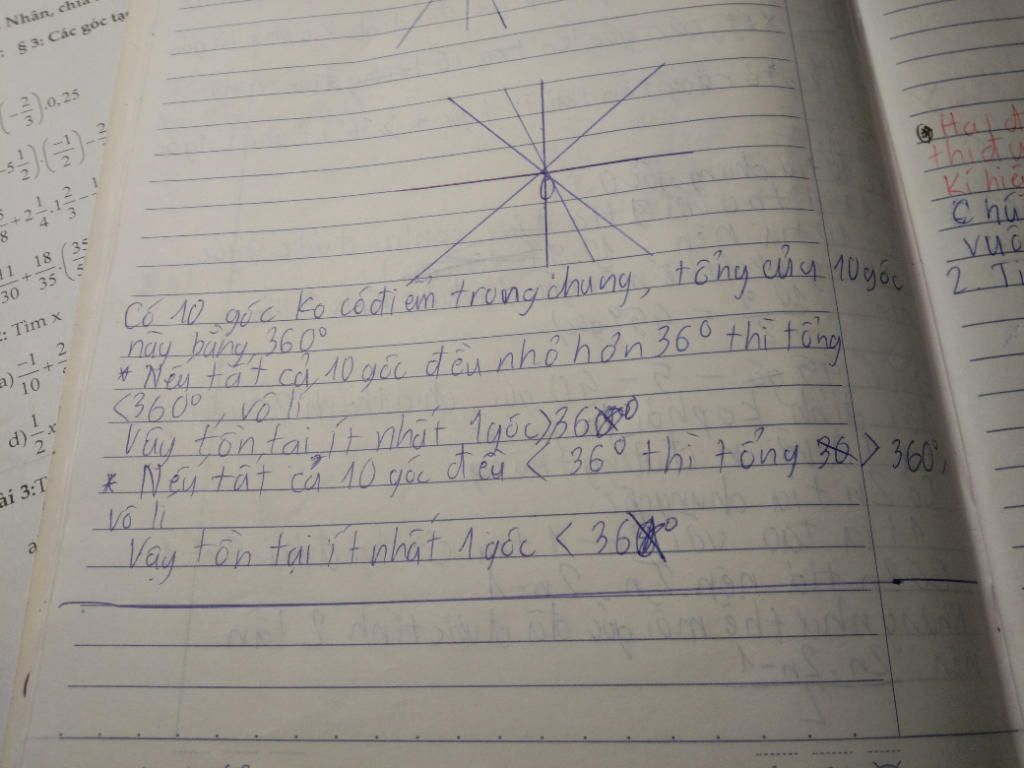 Nhân, chia
: § 3: Các góc tạ
(-2/3).0,25
-5 1/2).(-1/2)-
8+2 1/4.1 2/3-
11/30+18/35.(
: Tìm x
a) -1/10+
d) 1/2 x
ài 3:T
a
O
Có 10 góc ko có điểm trong chung, tổng của 10 góc
này bằng 360°
* Nếu tất cả 10 góc đều nhỏ hơn 36° thì tổng
<360°, vô lí
Vậy tồn tại ít nhất 1 góc > 36°
* Nếu tất cả 10 góc đều < 36° thì tổng > 360°,
vô lí
Vậy tồn tại ít nhất 1 góc < 36°
Hai đ
thì đư
Kí hiệ
Chú
vuô
2 Ti